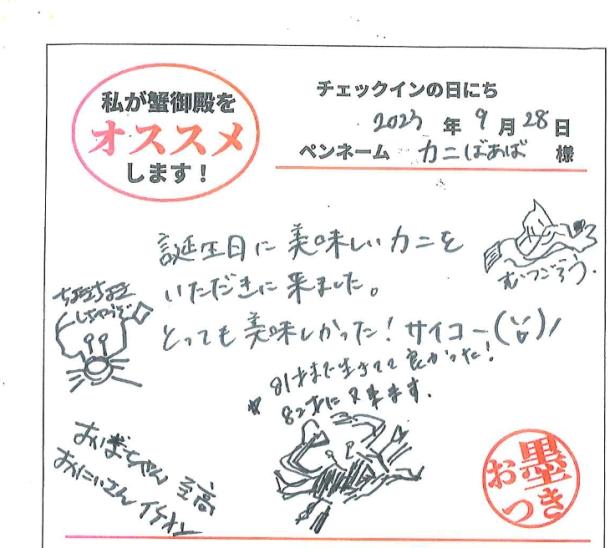 私が蟹御殿を
オススメ
します！
チェックインの日にち
2023 年 9 月 28 日
ペンネーム カニばあば 様
誕生日に美味しいカニを
いただきに来ました。
とっても美味しかった！サイコー
むつごろう。
ちょきちょき
しちゃうぞ
81才まで生きてて良かった！
82才に又来ます。
おばちゃん 至高
おにいさん イケメン
お墨つき